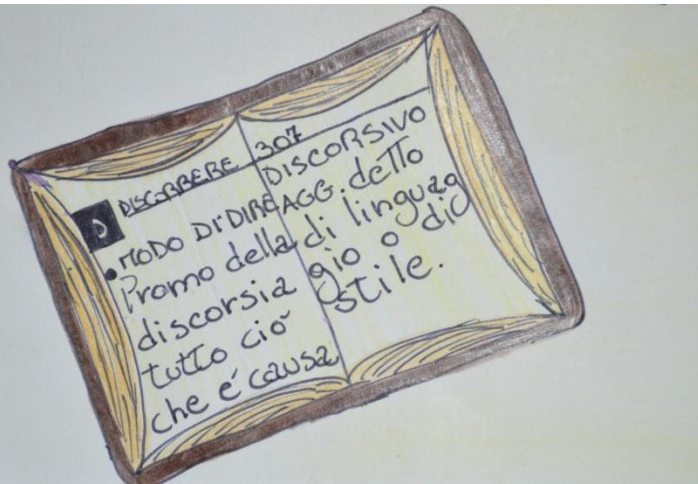 307
D
• MODO DI DIRE
Promo della
discorsia
tutto ció
che é causa
DISCORSIVO
AGG. detto
di linguag
gio o di
stile.